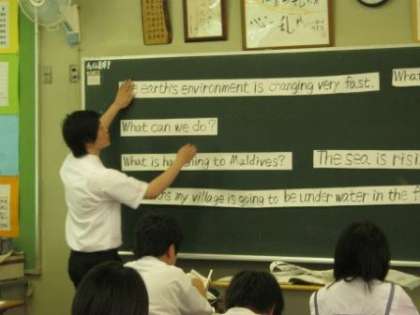 earth's environment is changing very fast. What
What can we do?
What is happening to Maldives? The sea is risi
my village is going to be under water in the f